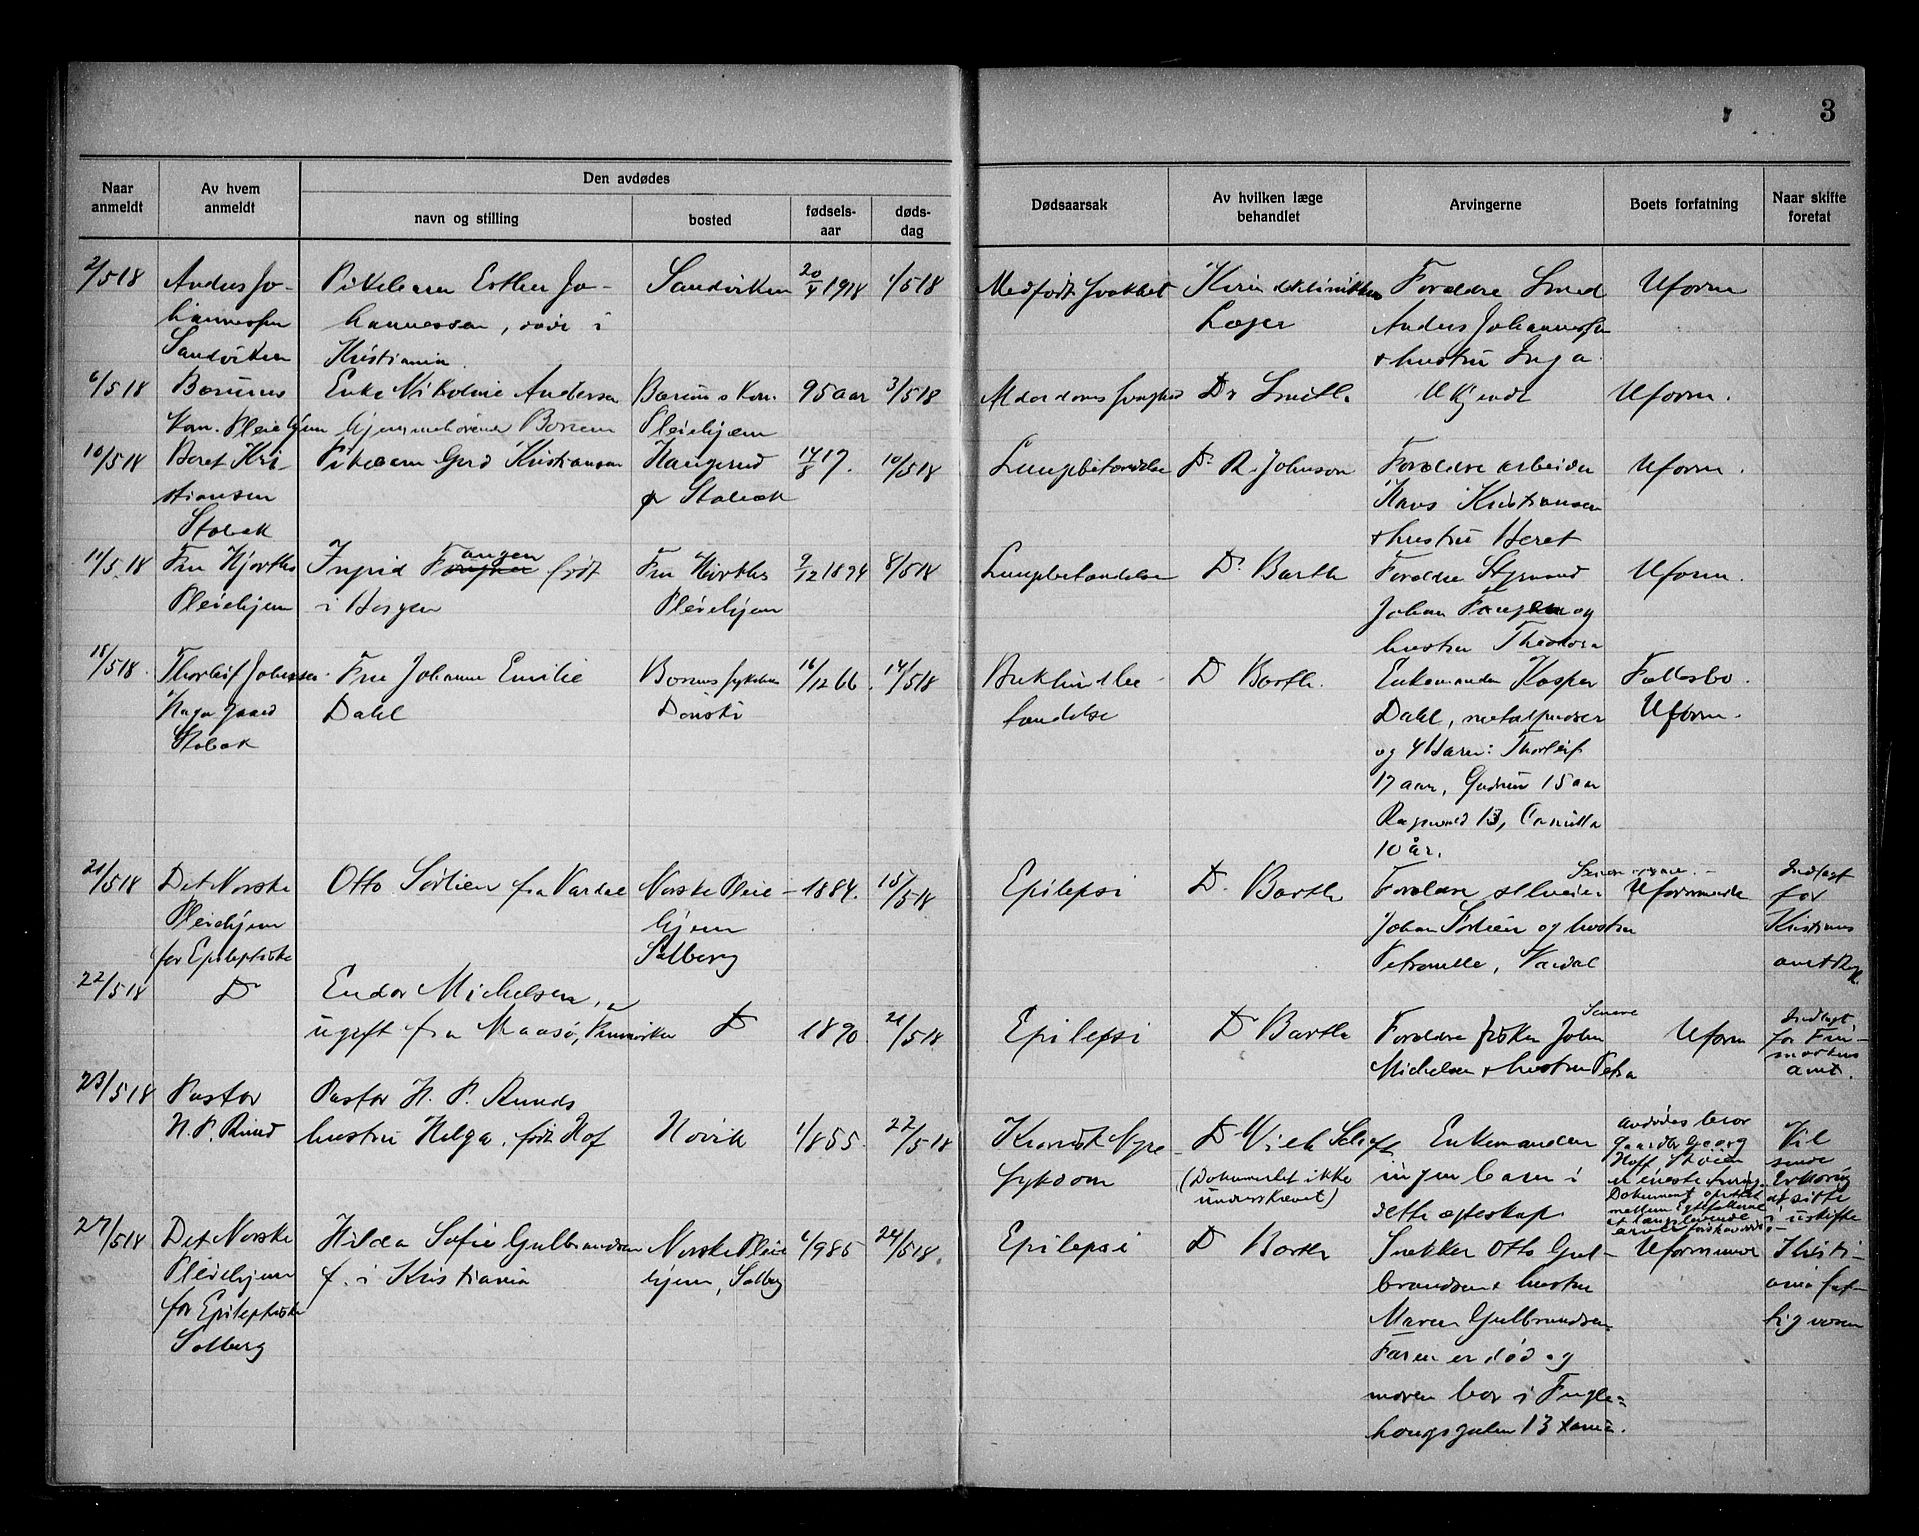 3
Naar anmeldt
Av hvem anmeldt
Den avdødes
navn og stilling
bosted
fødsels-aar
døds-dag
Dødsaarsak
Av hvilken læge behandlet
Arvingerne
Boets forfatning
Naar skifte foretat
2/5 18
Anders Jo-
hannessen
Sandviken
Pikebarn Esther Jo-
hannessen, døde i
Kristiania
Sandviken
20/4 1918
1/5 18
Medfødt svakhet
Læger
Forældre Smed
Anders Johannessen
+ hustru Inga
Uform
6/5 18
Bærums
Kom. Pleiehjem
Enke Nikoline Andersen
hjemmehørende Bærum
Bærums Kom.
Pleiehjem
95 aar
3/5 18
Alderdomssvaghed
Dr Smith
Ukjendt
Uform.
10/5 18
Beret Kri-
stiansen
Stabæk
Pikebarn Gerd Kristiansen
Haugerud
pr Stabæk
14/8 17.
10/5 18
Lungebetændelse
Dr R. Johnson
Forældre arbeider
Hans Kristiansen
+ hustru Beret
Uform.
11/5 18
Fru Hjorths
Pleiehjem
Ingrid Fangen født
i Horgen
Fru Hjorths
Pleiehjem
9/12 1894
8/5 18
Lungebetændelse
Dr Barth
Forældre Styrmand
Johan Fangen og
hustru Theodora
Uform.
15/5 18.
Thorleif Johansen
Haga gaard
Stabæk
Fru Johanne Emilie
Dahl
Bærums sykehus
Dønski
16/12 66.
14/5 18
Bukhindbe-
tændelse
D Barth.
Enkemanden Kasper
Dahl, metalpudser
og 4 Barn: Thorleif
17 aar, Gudrun 15 aar
Ragnvald 13, Camilla
10 år.
Fællesbo.
Uform.
21/5 18
Det Norske
Pleiehjem
for Epileptiske
Otto Sørlien fra Vardal
Norske Pleie-
hjem
Solberg
1884.
15/5 18
Epilepsi
D. Barth
Forældre
Johan Sørlien og hustru
Petronelle, Vardal
Uformuende
Indlagt
for
Kristians
amt
22/5 18
Do
Endor Michelsen,
ugift fra Maasø, Finmarken
Do
1890
21/5 18
Epilepsi
D Barth
Forældre fisker John
Michelsen + hustru Petra
Senere
Uform
Indlagt
for Fin-
markens
amt.
23/5 18
Pastor
H. P. Rund
Pastor H. P. Runds
hustru Helga, født Hof
Høvik
1/8 55.
22/5 18
Kronisk Nyre-
sykdom
(Dokumentet ikke
underskrevet)
Enkemanden
ingen barn i
dette ægteskap
avdødes bror
Gaardbr Georg
Hoff Støien
er eneste
Dokument oprettet
mellem egtefolkene
at længstlevende
Vil
sende
Erklæring
at sitte
i uskifte
27/5 18
Det Norske
Pleiehjem
for Epileptiske
Solberg
Hilda Sofie Gulbrandsen
f. i Kristiania
Norske Pleie
hjem, Solberg
6/9 85
24/5 18.
Epilepsi
D Barth
Snekker Otto Gul-
brandsen + hustru
Maren Gulbrandsen.
Faren er død og
moren bor i Fugle-
haugsgaten 13
Uformuende
Kristi-
ania fat-
tigvæsen